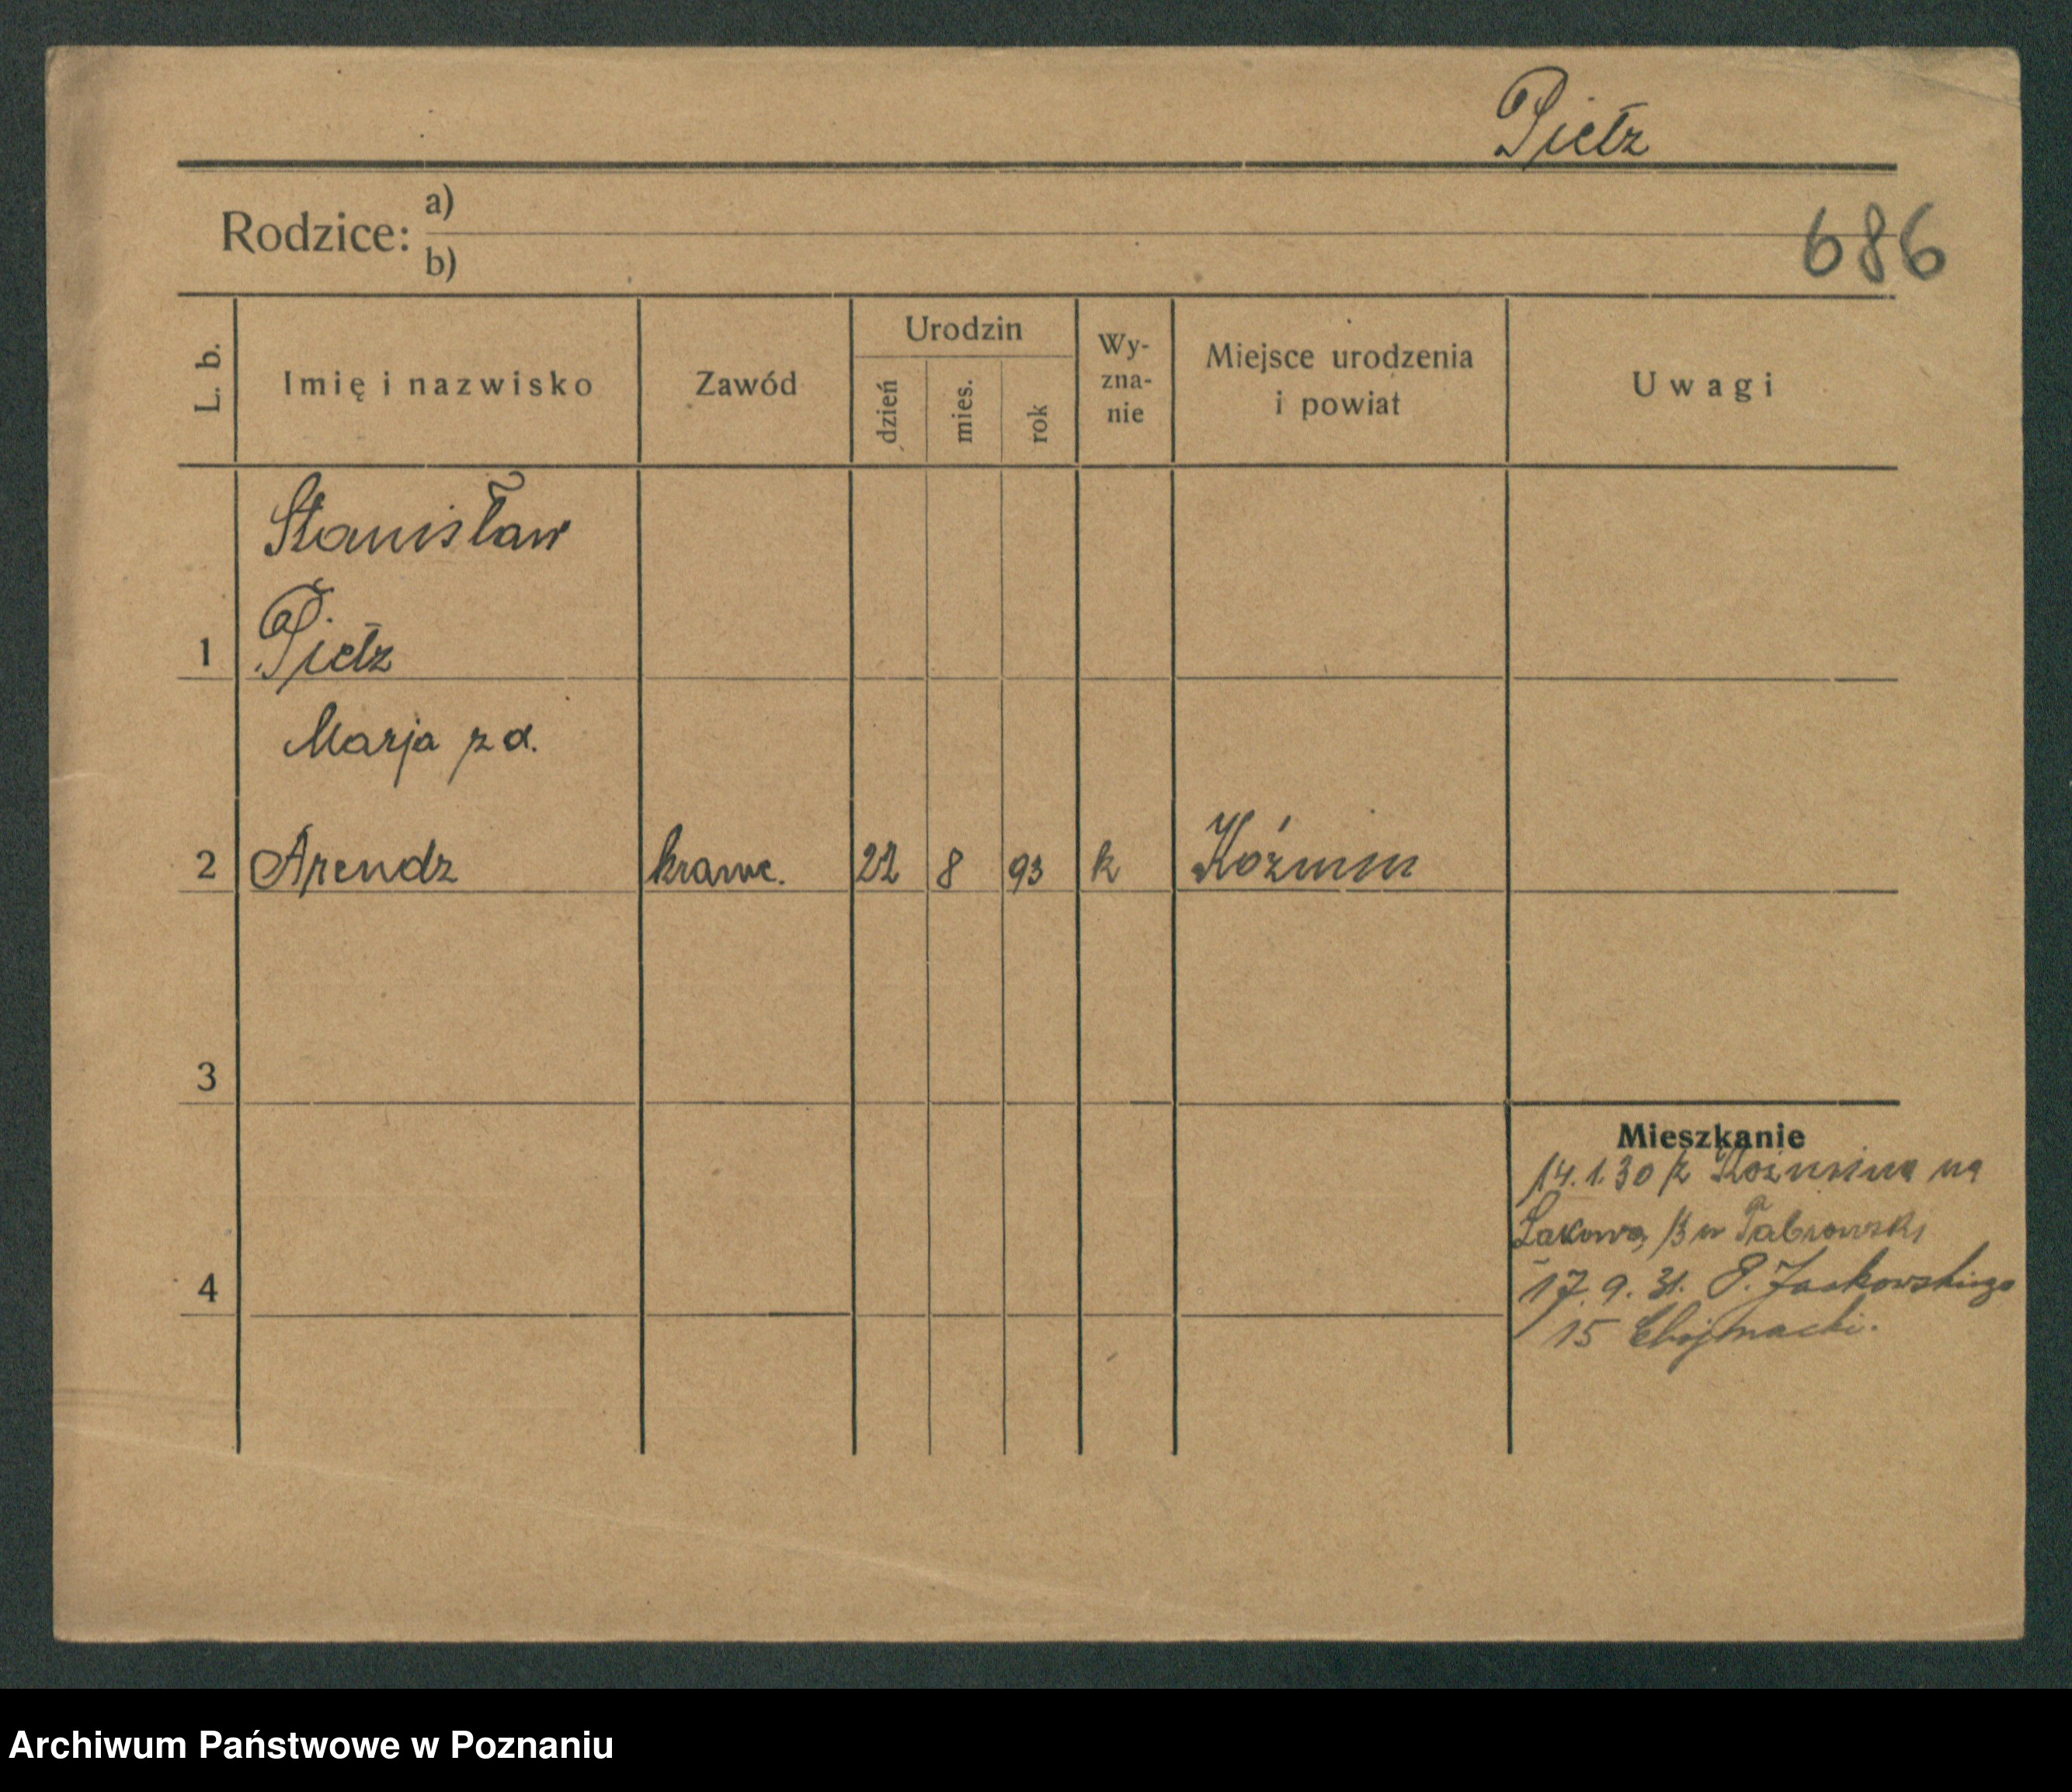 Pietz
Rodzice: a)
b)
686
L. b.
Imię i nazwisko
Zawód
Urodzin
dzień
mies.
rok
Wy-
zna-
nie
Miejsce urodzenia
i powiat
Uwagi
Stanisław
1 Pietz
Marja z d.
2 Arendz krawc. 22 8 93 k Koźmin
3
Mieszkanie
14.1.30 z Koźmina na
Łakowa, 13 u
4
17.9.31. P. Jackowskiego
15 Chojnacki.
Archiwum Państwowe w Poznaniu